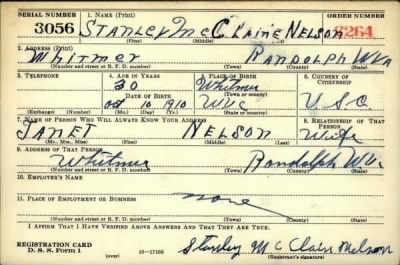 SERIAL NUMBER 1. NAME (Print) ORDER NUMBER
3056 STANLEY McClaine NELSON 6264
(First) (Middle) (Last)
2. ADDRESS (Print)
WHITMER RANDOLPH WVA
(Number and street or R. F. D. number) (Town) (County) (State)
3. TELEPHONE 4. AGE IN YEARS 5. PLACE OF BIRTH 6. COUNTRY OF CITIZENSHIP
30 Whitmer
DATE OF BIRTH (Town or county)
Oct 10 1910 WVa U S C
(Exchange) (Number) (Mo.) (Day) (Yr.) (State or country)
7. NAME OF PERSON WHO WILL ALWAYS KNOW YOUR ADDRESS 8. RELATIONSHIP OF THAT PERSON
JANET NELSON Wife
(Mr., Mrs., Miss) (First) (Middle) (Last)
9. ADDRESS OF THAT PERSON
Whitmer Randolph WVa
(Number and street or R. F. D. number) (Town) (County) (State)
10. EMPLOYER'S NAME
none
11. PLACE OF EMPLOYMENT OR BUSINESS
(Number and street or R. F. D. number) (Town) (County) (State)
I AFFIRM THAT I HAVE VERIFIED ABOVE ANSWERS AND THAT THEY ARE TRUE.
REGISTRATION CARD
D. S. S. Form 1 16—17105 Stanley McClain Nelson
(Registrant's signature)